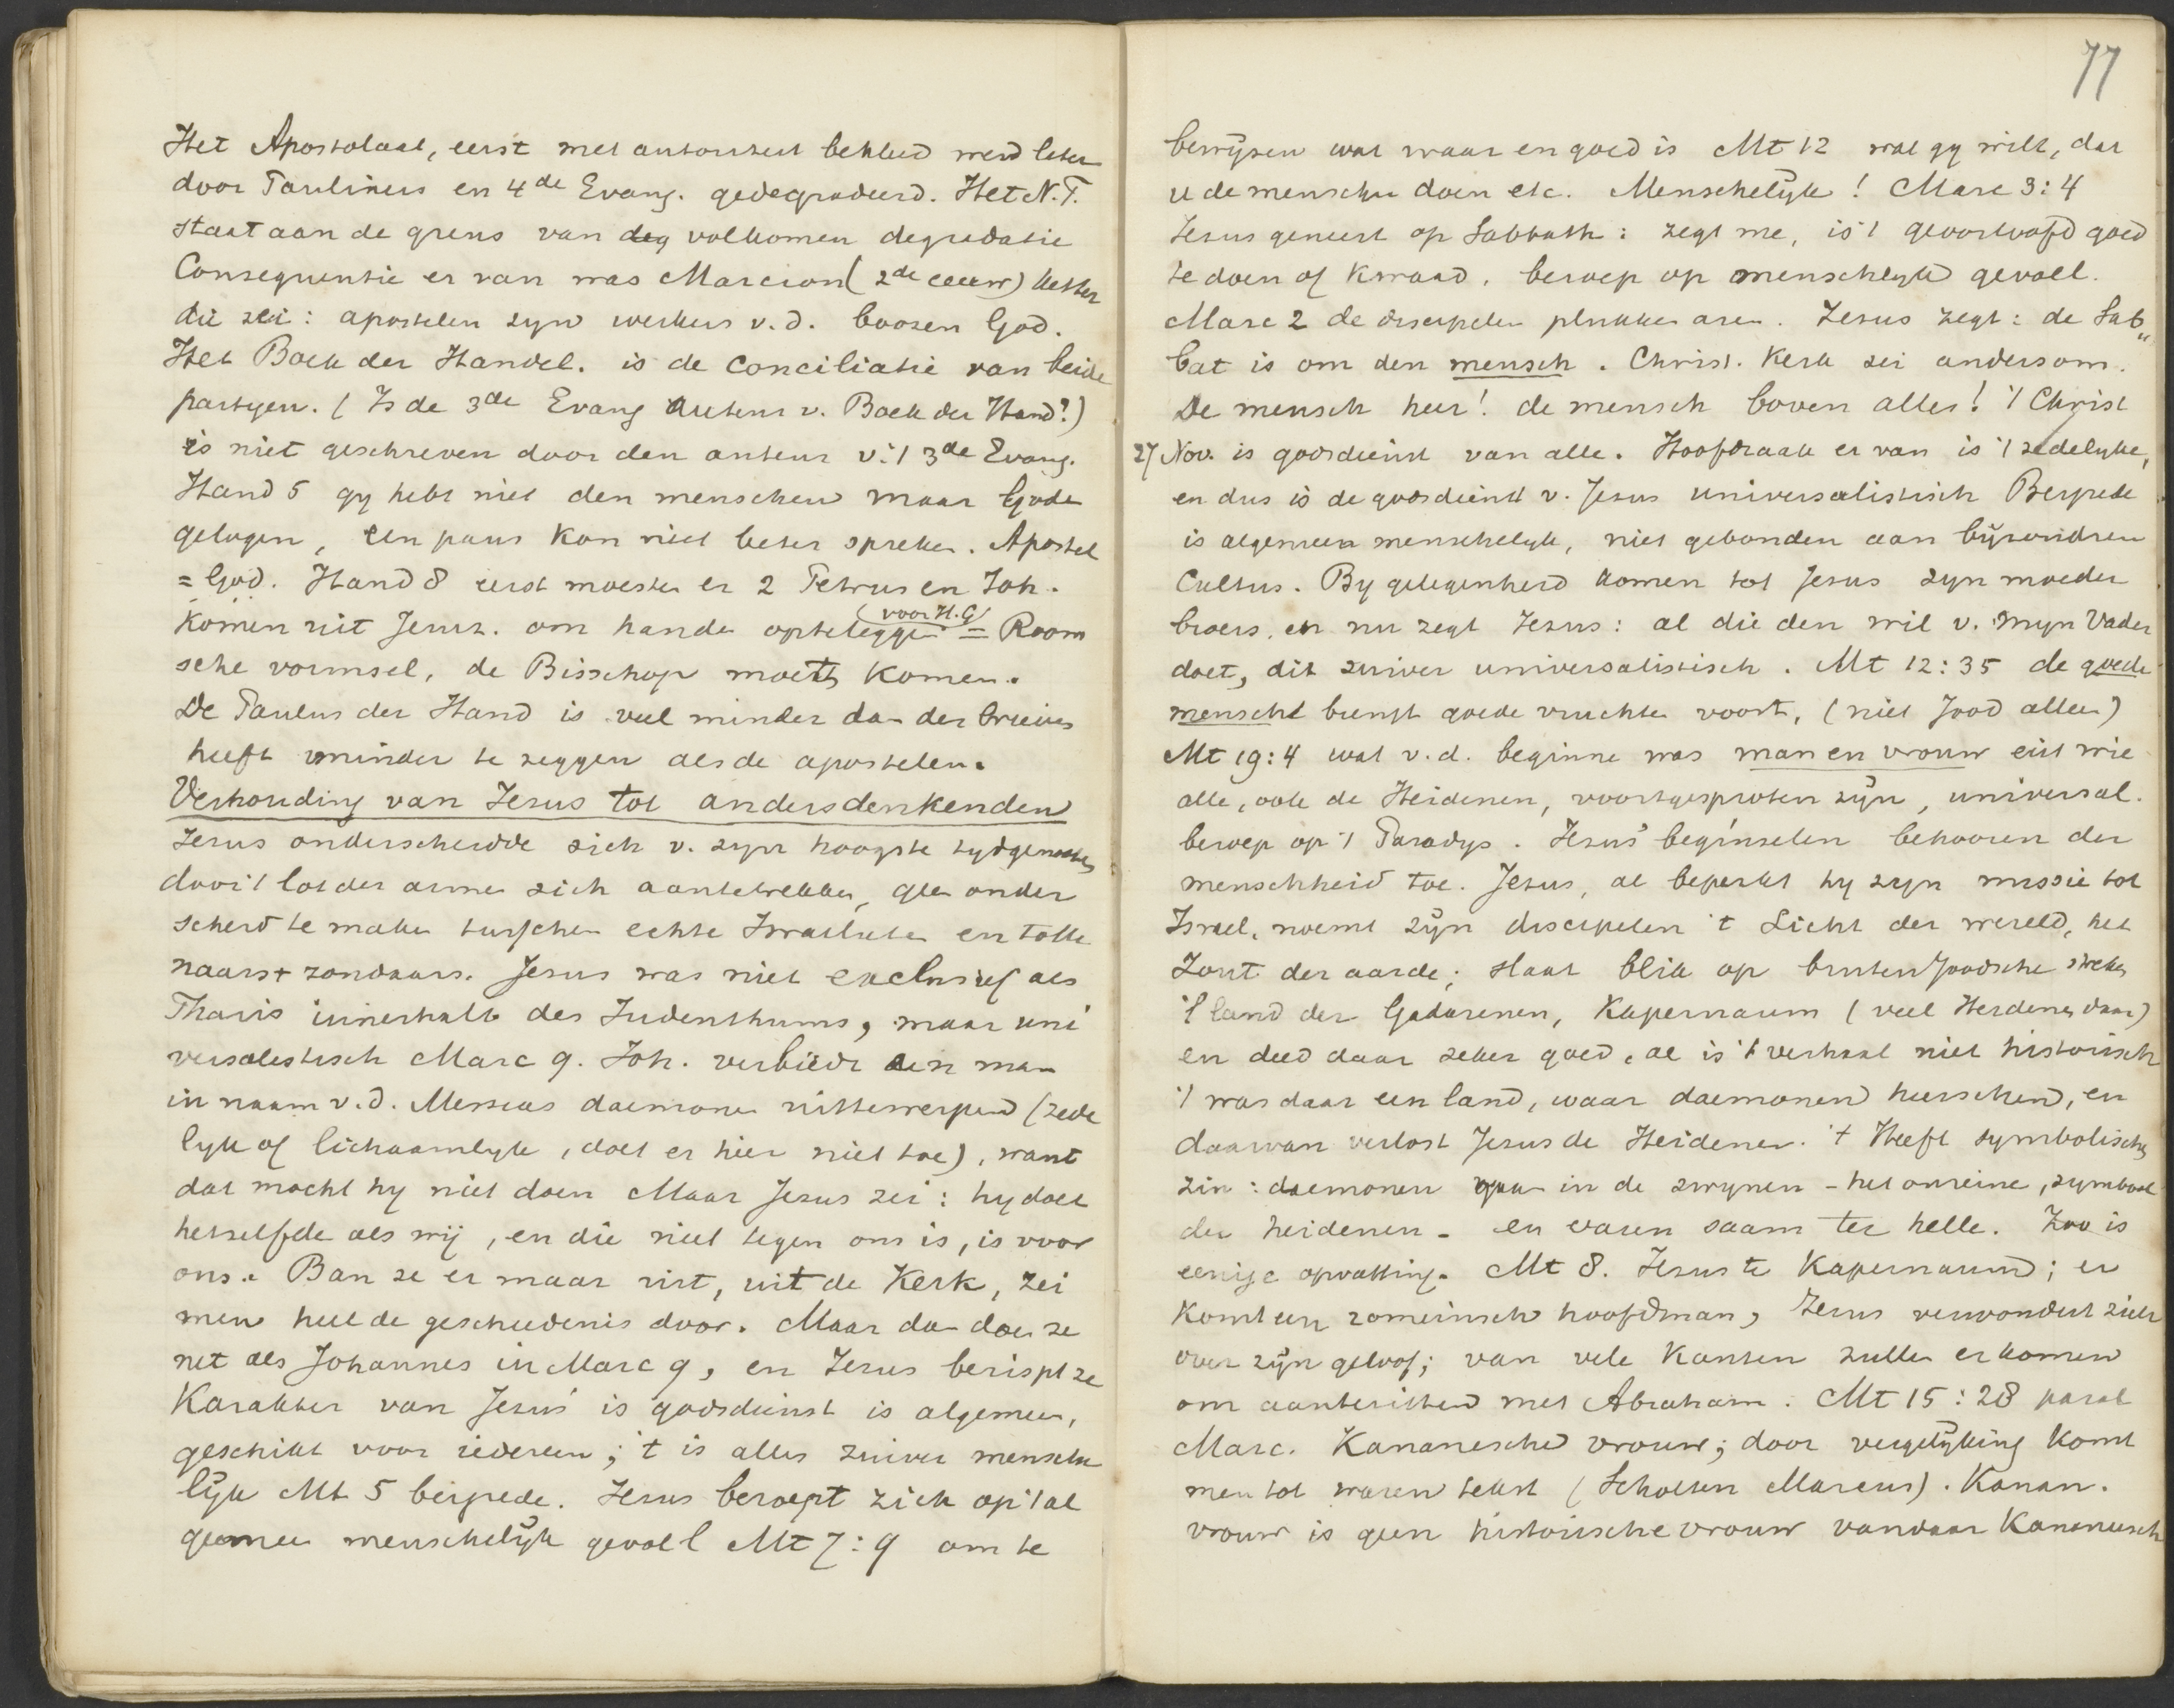 Het Apostolaat, eerst met autoriteit bekleed werd later
door Pauliners en 4de Evang. gedegradeerd. Het N.T.
staat aan de grens van deg volkomen degradatie
Consequentie er van was Marcion (2de eeuw) ketter
die zei: apostelen zyn werkers v.d. boozen God.
Het Boek der Handel. is de conciliatie van beide
partyen. (Is de 3de Evang Auteur v. Boek der Hand?)
is niet geschreven door den auteur v. 't 3de Evang.
Hand 5 gy hebt niet den menschen maar Gode
gelogen, een paus kon niet beter spreken. Apostel
= God. Hand 8 eerst moesten er 2 Petrus en Joh.
komen uit Jeruz. om handen opteleggen (voor H.G) = Room
sche vormsel, de Bisschop moet komen.
De Paulus der Hand is veel minder dan der brieven
heeft minder te zeggen als de apostelen.
Verhouding van Jezus tot andersdenkenden
Jezus onderscheidde zich v. zyn hoogste tydgenooten
door 't lot der armen zich aantetrekken, geen onder
scheid te maken tusschen echte Israelieten en tolle
naars + zondaars. Jesus was niet exclusief als
Pharis innerhalb des Judenthums, maar uni
versalistisch Marc 9. Joh. verbiedt een man
in naam v.d. Messias daemonen uittewerpen (zede
lyk of lichaamlyk, doet er hier niet toe), want
dat mocht hy niet doen Maar Jezus zei: hy doet
hetzelfde als wij, en die niet tegen ons is, is voor
ons. Ban ze er maar uit, uit de Kerk, zei
men heel de geschiedenis door. Maar dan doen ze
net als Johannes in Marc 9, en Jezus berispt ze
Karakter van Jesus' is godsdienst is algemeen,
geschikt voor iedereen; 't is alles zuiver mensche
lijk Mt 5 bergrede. Jezus beroept zich op 't al
gemeen menschelijk gevoel Mt 7:9 om te
77
bewijzen wat waar en goed is Mt 12 wat gy wilt, dat
u de menschen doen etc. Menschelijk! Marc 3:4
Jezus geneest op Sabbath: zegt me, is 't geoorloofd goed
te doen of kwaad, beroep op menschelyk gevoel.
Marc 2 de discipelen plukken aren. Jezus zegt: de Sab"
bat is om den mensch. Christ. Kerk zei andersom.
De mensch heer! de mensch boven alles! 't Christ
27 Nov. is godsdienst van alle. Hoofdzaak er van is 't zedelyke,
en dus is de godsdienst v. Jesus universalistisch Bergrede
is algemeen menschelyk, niet gebonden aan bijzonderen
Cultus. By gelegenheid komen tot Jesus zyn moeder
broers, en nu zegt Jezus: al die den wil v. myn Vader
doet, dit zuiver universalistisch. Mt 12:35 de goede
mensch brengt goede vruchten voort, (niet Jood alleen)
Mt 19:4 wat v.d. beginne was man en vrouw uit wie
alle, ook de Heidenen, voortgesproten zijn, universal.
beroep op 't Paradys. Jezus' beginselen behooren der
menschheid toe. Jesus, al beperkt hy zyn missie tot
Israel, noemt zijn discipelen 't Licht der wereld, het
Zout der aarde; slaat blik op buiten Joodsche streken
't land der Gadarenen, Kapernaum (veel Heidenen daar)
en deed daar zeker goed, al is 't verhaal niet historisch
't was daar een land, waar daemonen heerschen, en
daarvan verlost Jesus de Heidenen. 't Heeft symbolischen
zin: daemonen gaan in de zwynen - het onreine, symbool
der heidenen - en varen saam ter helle. Zoo is
eenige opvatting. Mt 8. Jezus te Kapernaum; er
komt een romeinsch hoofdman, Jezus verwondert zich
over zijn geloof; van vele kanten zullen er komen
om aantezitten met Abraham. Mt 15:28 paral
Marc. Kananesche vrouw; door vergelijking komt
men tot waren tekst (Scholten Marcus). Kanan.
vrouw is geen historische vrouw vandaar Kananeesch